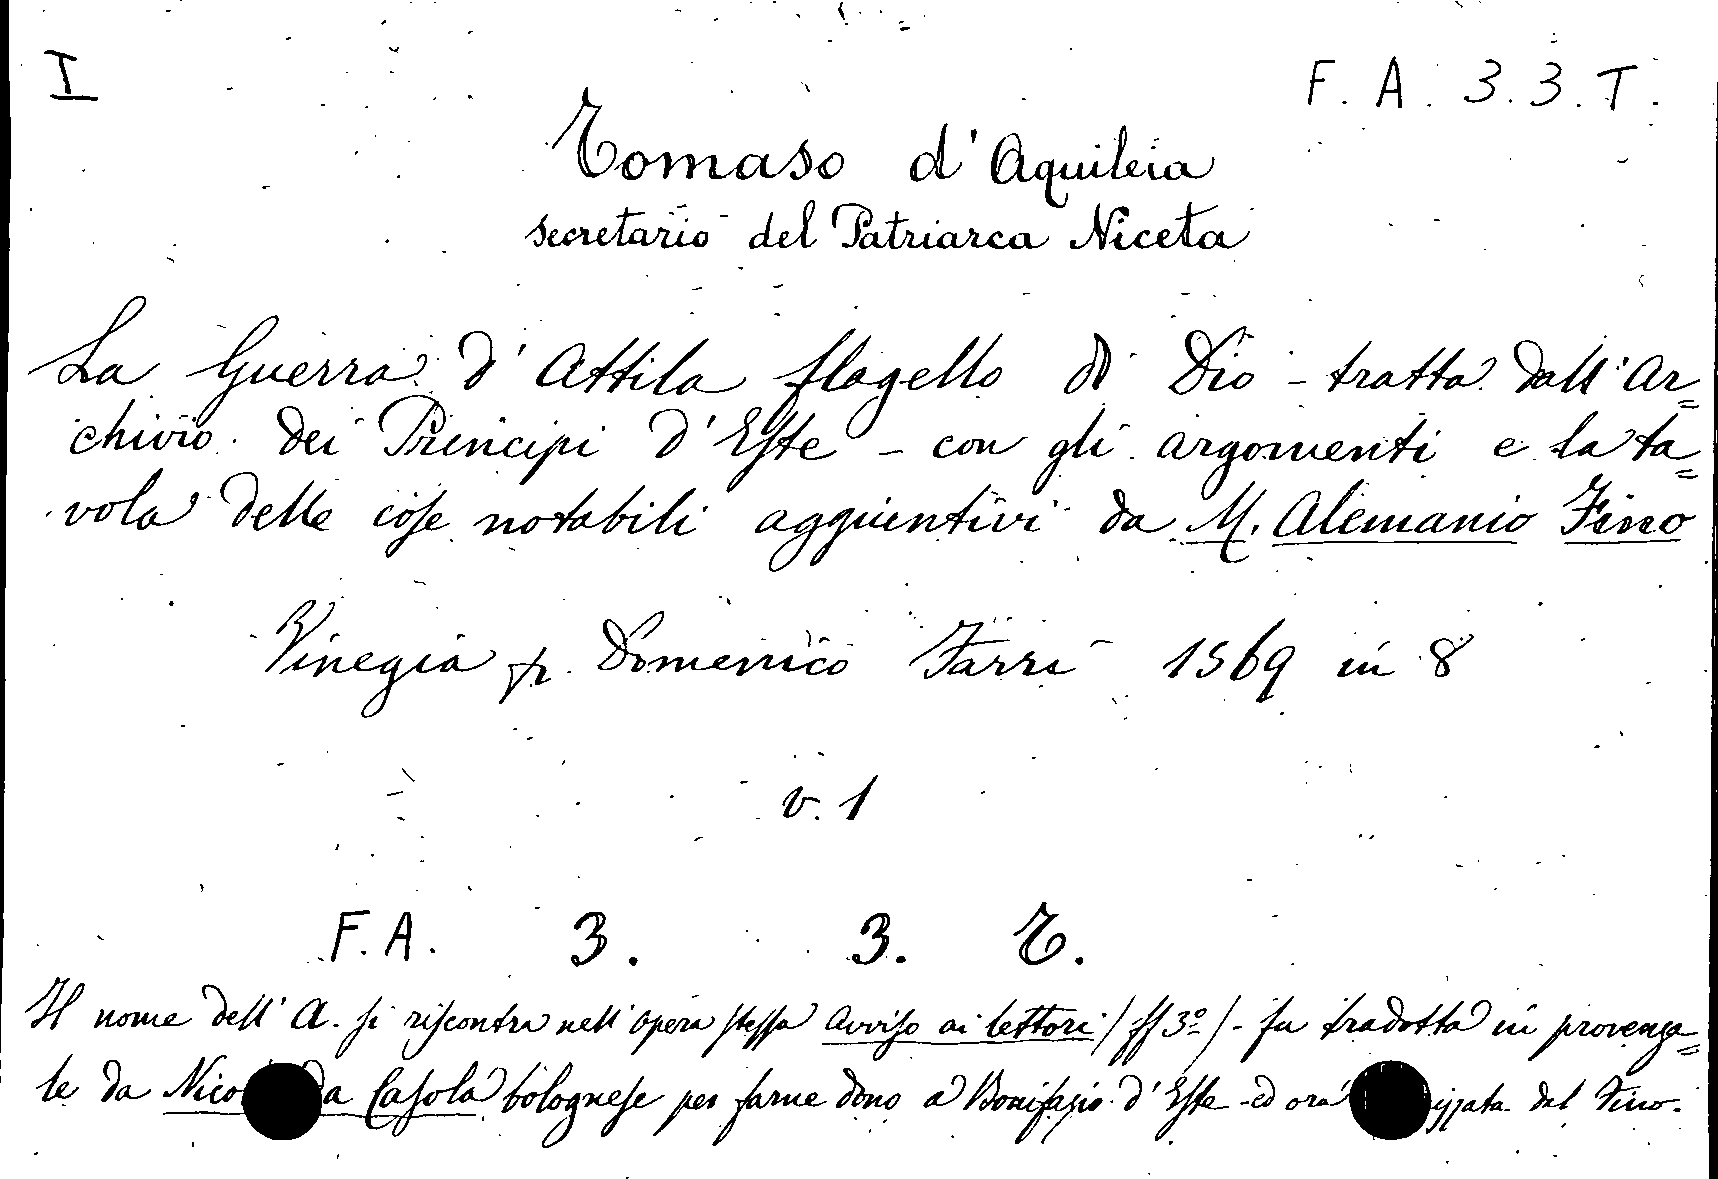 I
F. A. 3. 3. T.
Tomaso d'Aquileia
secretario del Patriarca Niceta
La Guerra d'Attila flagello di Dio - tratta dall'Ar=
chivio dei Principi d'Este - con gli argomenti e la ta=
vola delle cose notabili aggiuntivi da M. Alemanio Fino
Vinegia pr. Domenico Farri 1569 in 8
v. 1
F. A. 3. 3. T.
Il nome dell'A. si riscontra nell'opera stessa avviso ai lettori / ff 3º / - fu tradotta in provenza=
le da Nico da Casola bolognese per farne dono a Bonifazio d'Este - ed ora izzata dal Fino.